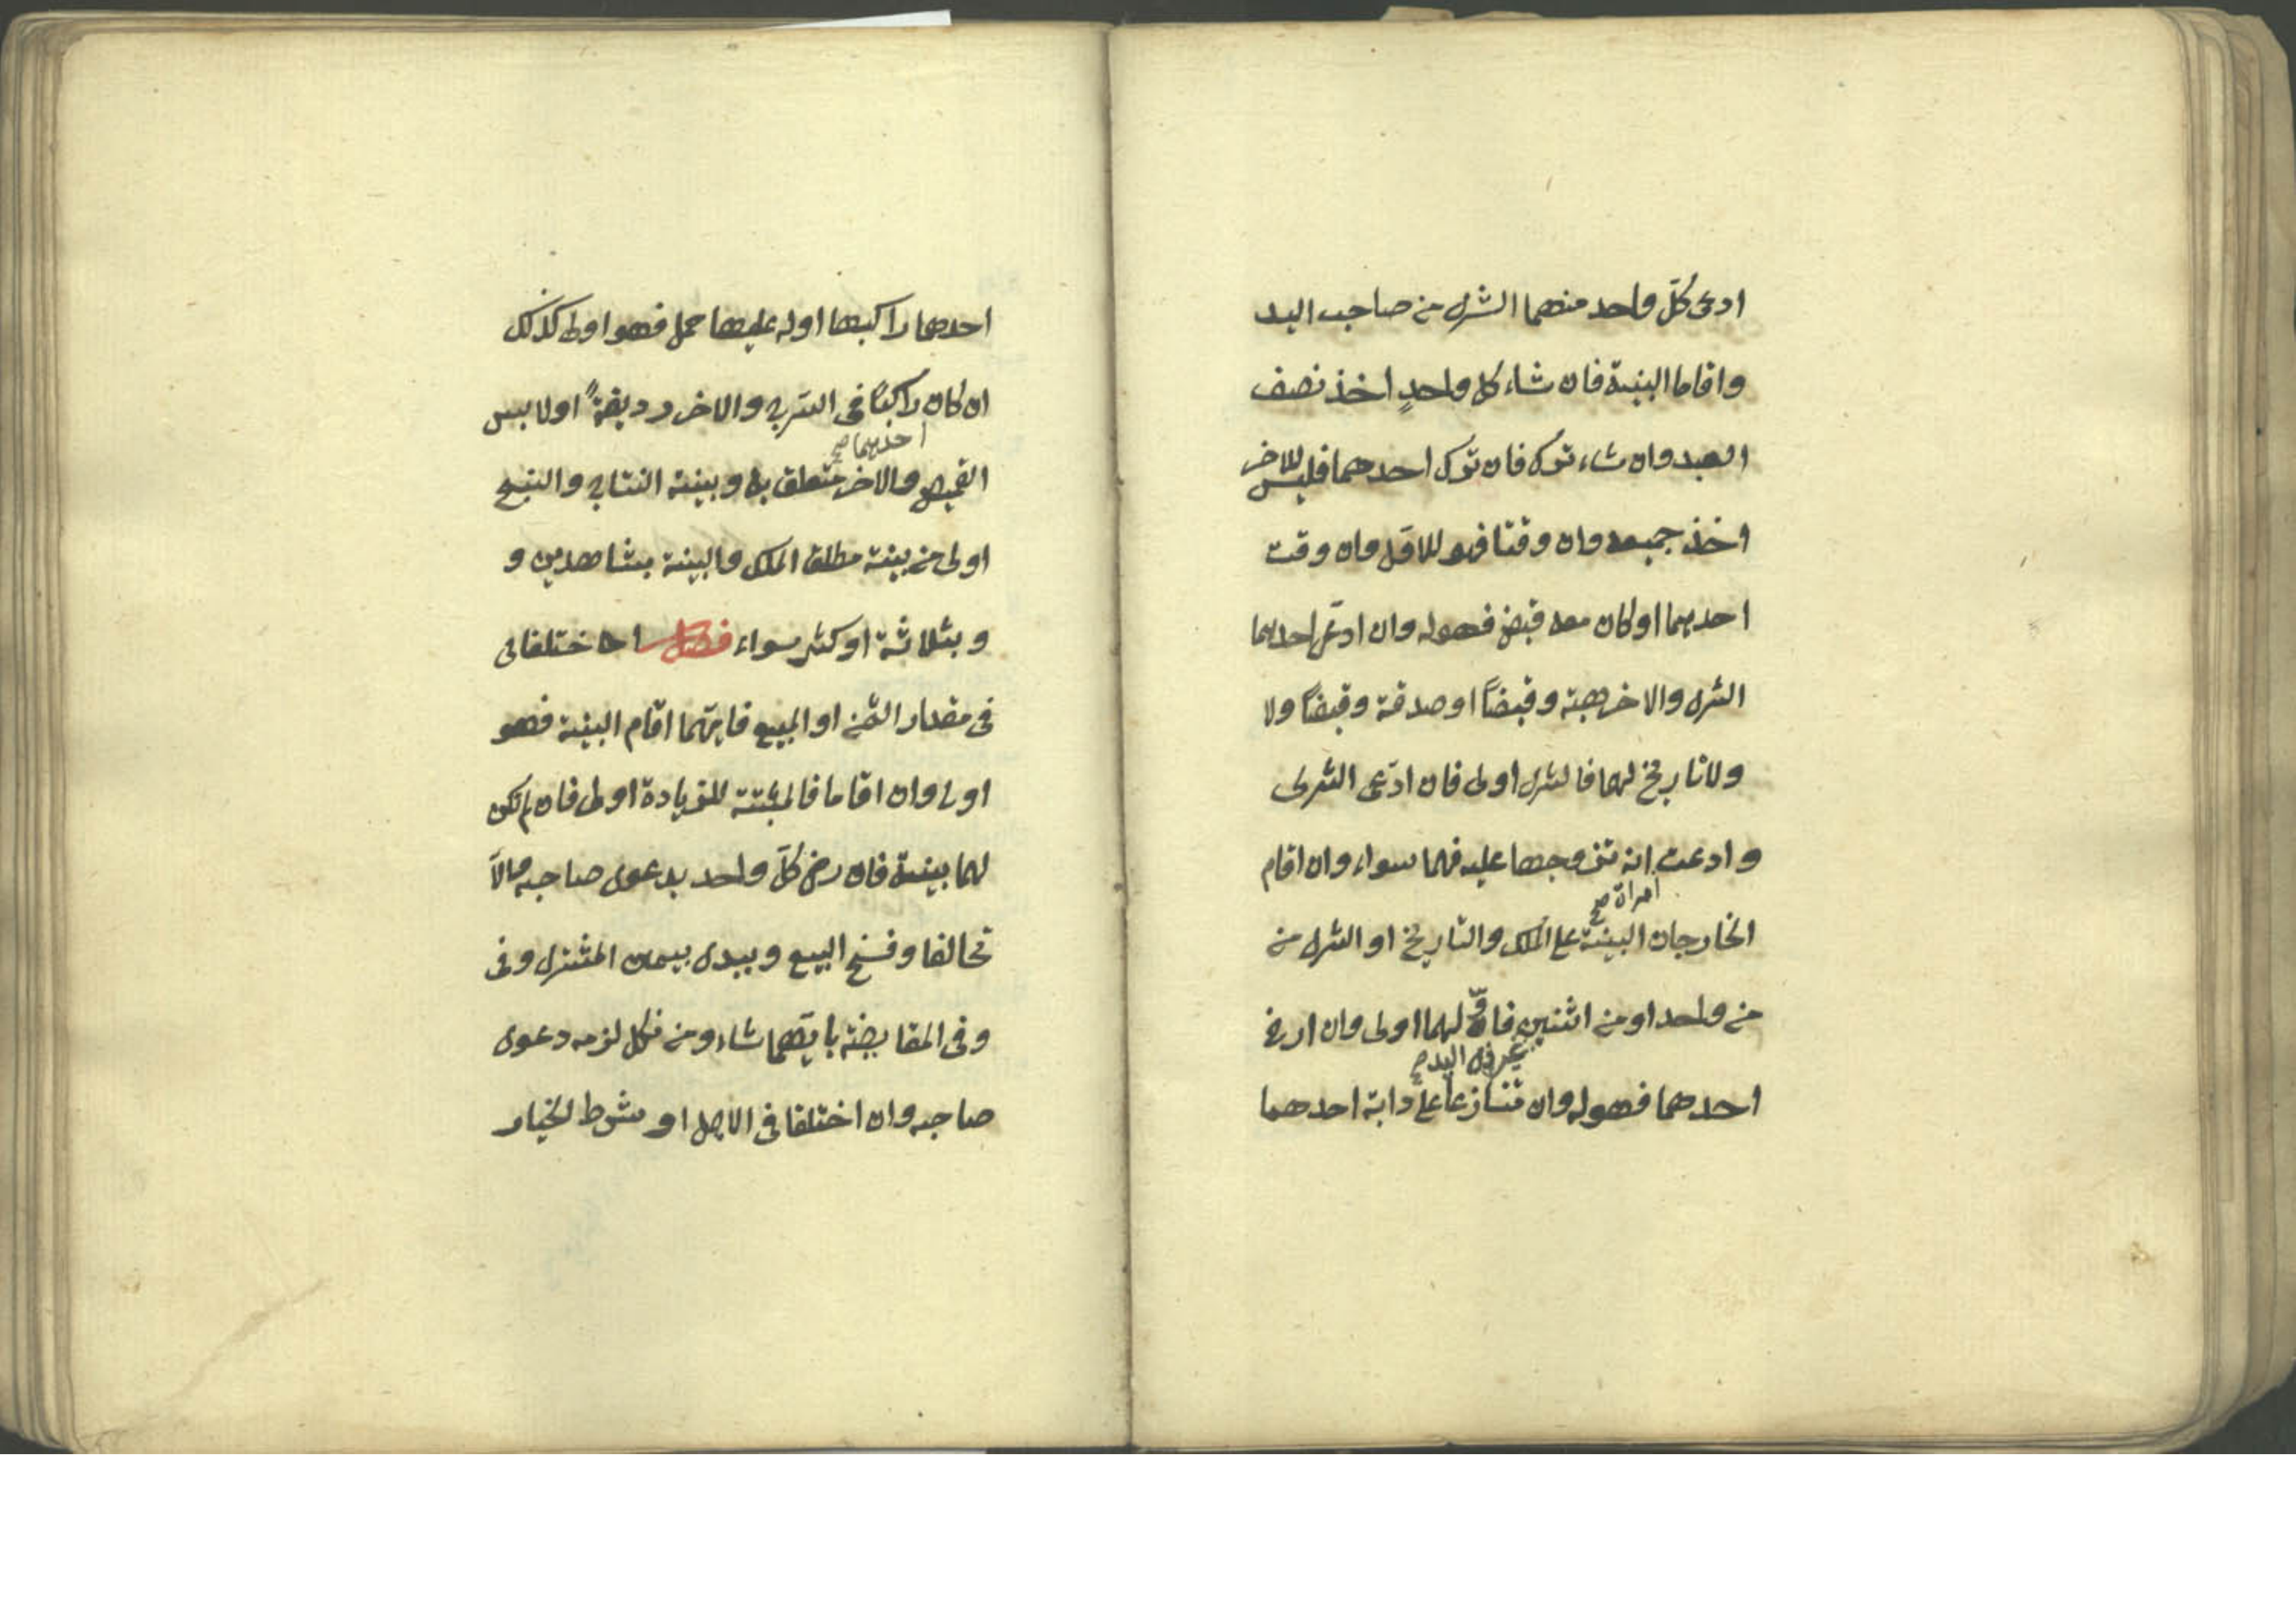 ادعى كلّ واحد منهما الشرى من صاحب اليد
واقاما البينة فان شاء كل واحدٍ اخذ نصف
العبد وان شاء ترك فان ترك احدهما فليس للاخر
اخذ جميعه وان وقتا فهو للاوّل وان وقت
احديهما او كان معه قبض فهو له وان ادعّى احديهما
الشرى والاخر هبة وقبضاً او صدقة وقبضاً ولا
ولا تاريخ لهما فالشرى اولى فان ادّعى الشرى
وادعت انه تزوجها عليه فهما سواء وان اقام
امراة صح
الخارجان البينة على الملك والتاريخ او الشرى من
من واحد او من اثنين فاوّلهما اولى وان ارخ
غير ذى اليد صح
احدهما فهو له وان تنازعا على دابة احدهما
احدهما راكبها او له عليها حمل فهو اولى كذلك
ان كان راكبًا فى السرج والاخر رديفةً او لابس
احديهما صح
القميص والاخر متعلق به وبينة النتاج والنسج
اولى من بينة مطلق الملك والبينة بشاهدين و
وبثلاثة او كثر سواء فصل اختلفا فى
فى مقدار الثمن او المبيع فايّهما اقام البينة فهو
اولى وان اقاما فالمثبتة للزيادة اولى فان لم تكن
لهما بينة فان رضى كلّ واحد بدعوى صاحبه والّا
تحالفا وفسخ البيع ويبدى بيمين المشترى وفى
وفى المقايضة بايّهما شاء ومن نكل لزمه دعوى
صاحبه وان اختلفا فى الاجل او شرط الخيار